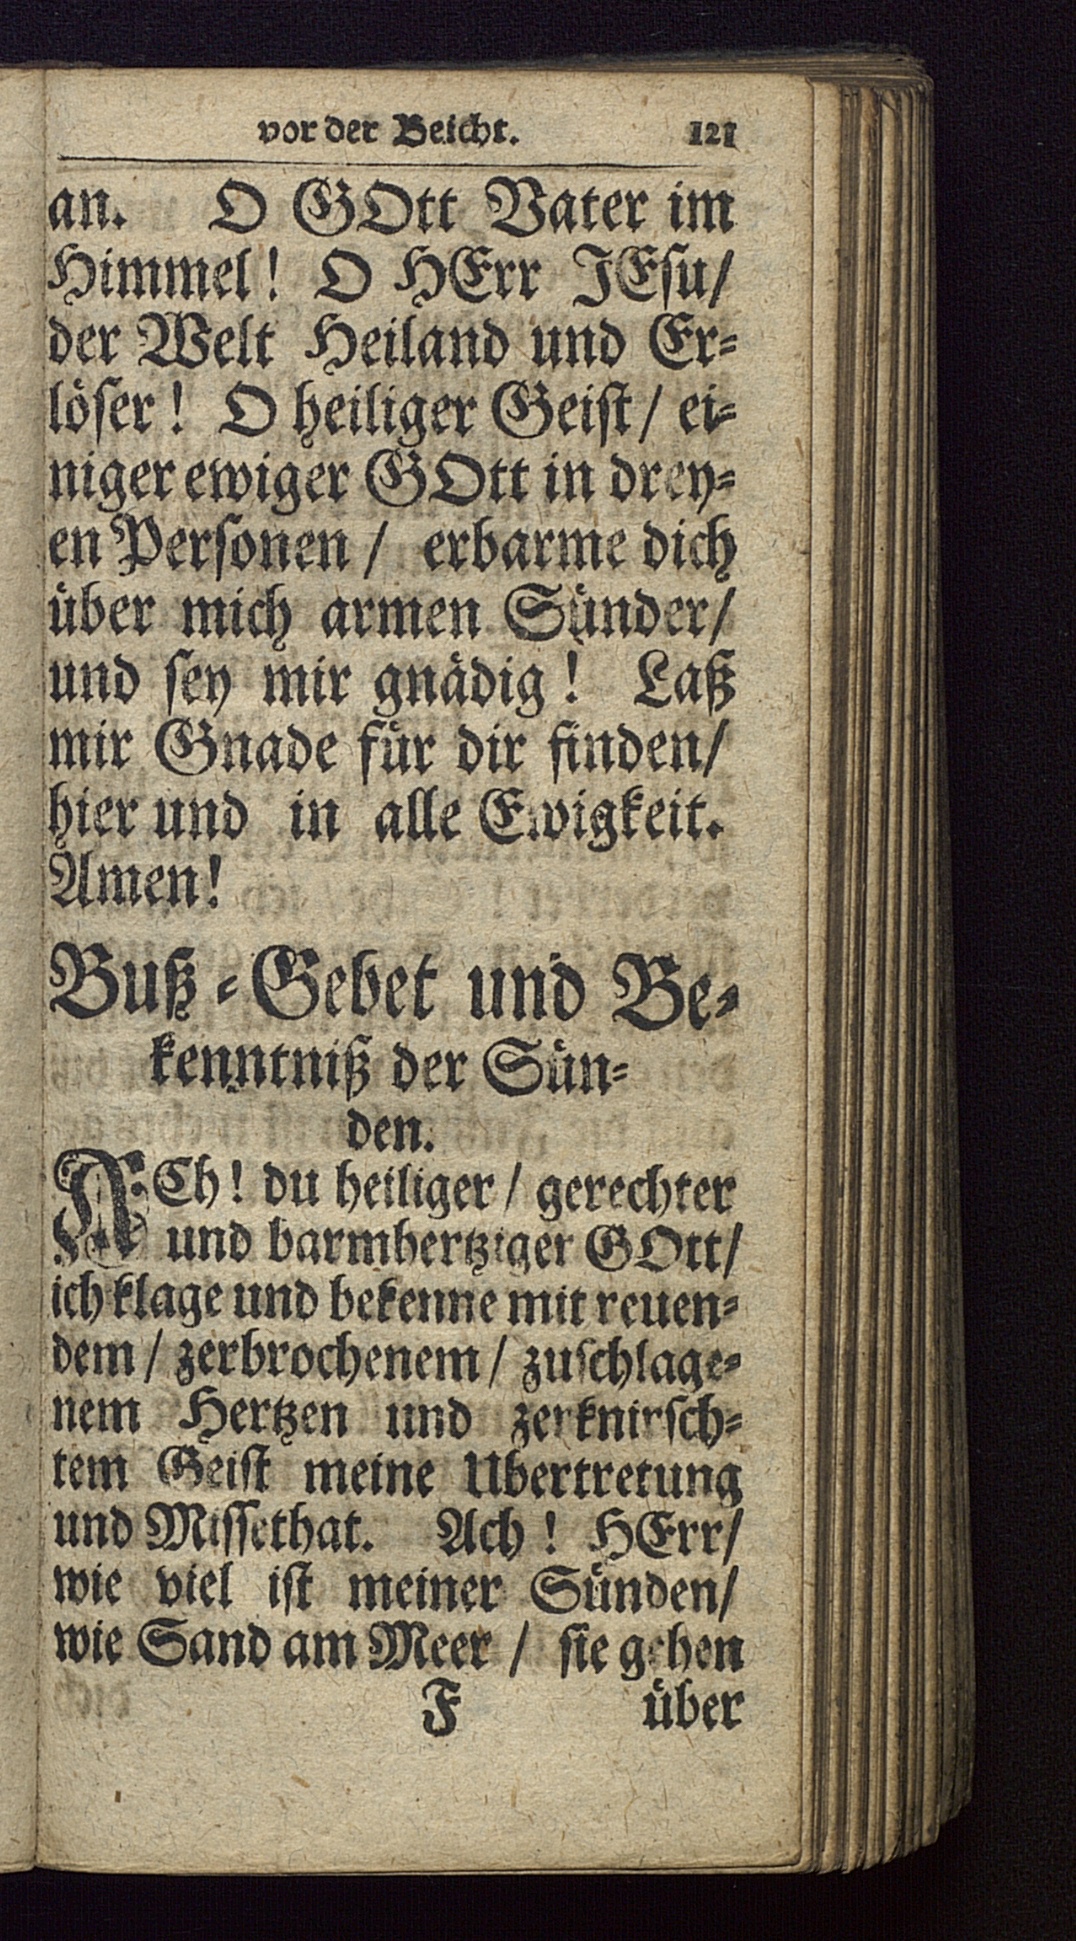 vor der Beicht. 121
an. O GOtt Vater im
Himmel! O HErr JEsu/
der Welt Heiland und Er-
löser! O heiliger Geist/ ei-
niger ewiger GOtt in drey-
en Personen/ erbarme dich
über mich armen Sünder/
und sey mir gnädig! Laß
mir Gnade für dir finden/
hier und in alle Ewigkeit.
Amen!
Buß-Gebet und Be-
kenntniß der Sün-
den.
ACh! du heiliger/ gerechter
und barmhertziger GOtt/
ich klage und bekenne mit reuen-
dem/ zerbrochenem/ zuschlage-
nem Hertzen und zerknirsch-
tem Geist meine Ubertretung
und Missethat. Ach! HErr/
wie viel ist meiner Sünden/
wie Sand am Meer/ sie gehen
F über